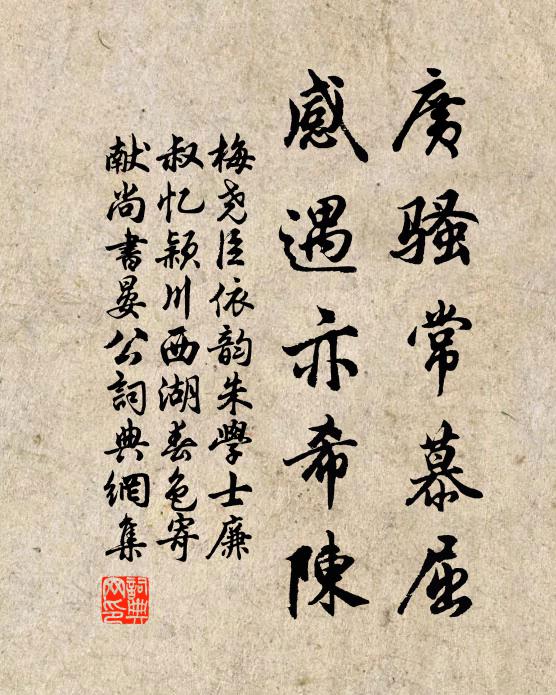 廣骚常慕屈
感遇亦希陳
梅尧臣依韵朱學士廉
叔忆颍川西湖春色寄
献尚書晏公詞典網集
詞典
网印